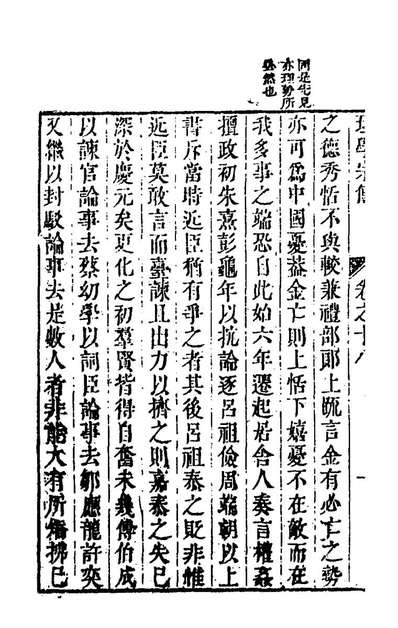 同是先見
亦理勢所
必然也
理學宗傳
卷之十八
之德秀恬不與較兼禮部郎上既言金有必亡之勢
亦可為中國憂葢金亡則上恬下嬉憂不在敵而在
我多事之端恐自此始六年遷起居舍人奏言權姦
擅政初朱熹彭龜年以抗論逐呂祖儉周端朝以上
書斥當時近臣猶有爭之者其後呂祖泰之貶非惟
近臣莫敢言而臺諫且出力以擠之則嘉泰之失已
深於慶元矣更化之初羣賢皆得自奮未幾傅伯成
以諫官論事去蔡幼學以詞臣論事去鄒應龍許奕
又繼以封駁論事去是數人者非能大有所矯拂已